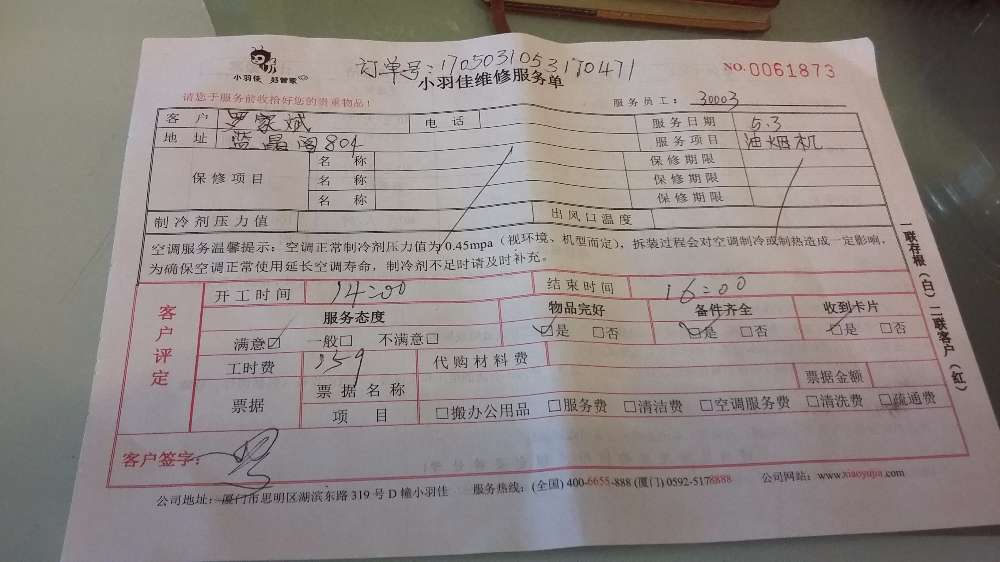 小羽佳 好管家
订单号：170503105370471
NO.0061873
小羽佳维修服务单
请您于服务前收拾好您的贵重物品！
服务员工：30003
客户 罗家斌 电话 服务日期 5.3
地址 蓝晶阁804 服务项目 油烟机
保修项目 名称 保修期限
名称 保修期限
名称 保修期限
制冷剂压力值 出风口温度
空调服务温馨提示：空调正常制冷剂压力值为0.45mpa（视环境、机型而定），拆装过程会对空调制冷或制热造成一定影响，
为确保空调正常使用延长空调寿命，制冷剂不足时请及时补充。
客户评定
开工时间 14:00 结束时间 16:00
服务态度 物品完好 备件齐全 收到卡片
满意☑ 一般□ 不满意□ ☑是 □否 ☑是 □否 ☑是 □否
工时费 159 代购材料费
票据 票据名称 票据金额
项目 □搬办公用品 □服务费 □清洁费 □空调服务费 □清洗费 □疏通费
客户签字：
公司地址：厦门市思明区湖滨东路319号D幢小羽佳 服务热线：(全国) 400-6655-888 (厦门) 0592-5178888 公司网站：www.xiaoyujia.com
一联存根（白）二联客户（红）